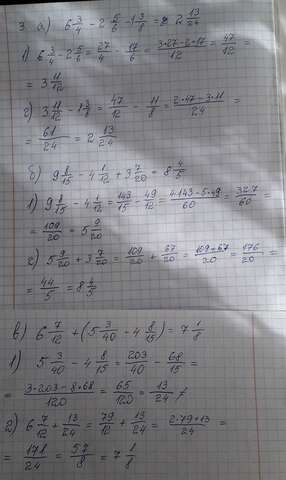 3. а) 6 3/4 - 2 5/6 - 1 3/8 = 2 13/24
1) 6 3/4 - 2 5/6 = 27/4 - 17/6 = (3·27-2·17)/12 = 47/12 =
= 3 11/12
2) 3 11/12 - 1 3/8 = 47/12 - 11/8 = (2·47-3·11)/24 =
= 61/24 = 2 13/24
б) 9 8/15 - 4 1/12 + 3 7/20 = 8 4/5
1) 9 8/15 - 4 1/12 = 143/15 - 49/12 = (4·143-5·49)/60 = 327/60 =
= 109/20 = 5 9/20
2) 5 9/20 + 3 7/20 = 109/20 + 67/20 = (109+67)/20 = 176/20 =
= 44/5 = 8 4/5
в) 6 7/12 + (5 3/40 - 4 8/15) = 7 1/8
1) 5 3/40 - 4 8/15 = 203/40 - 68/15 =
= (3·203-8·68)/120 = 65/120 = 13/24
2) 6 7/12 + 13/24 = 79/12 + 13/24 = (2·79+13)/24 =
= 171/24 = 57/8 = 7 1/8